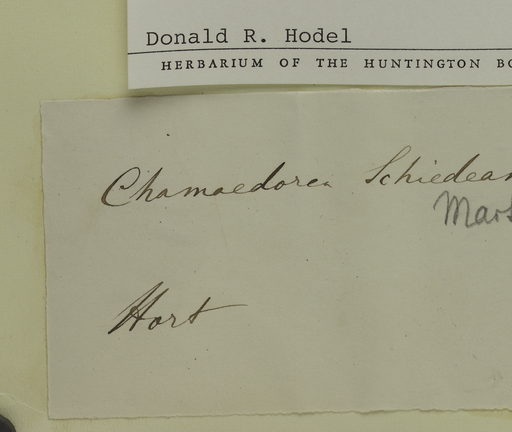 Donald R. Hodel
HERBARIUM OF THE HUNTINGTON BO
Chamaedorea Schiedean
Mart
Hort